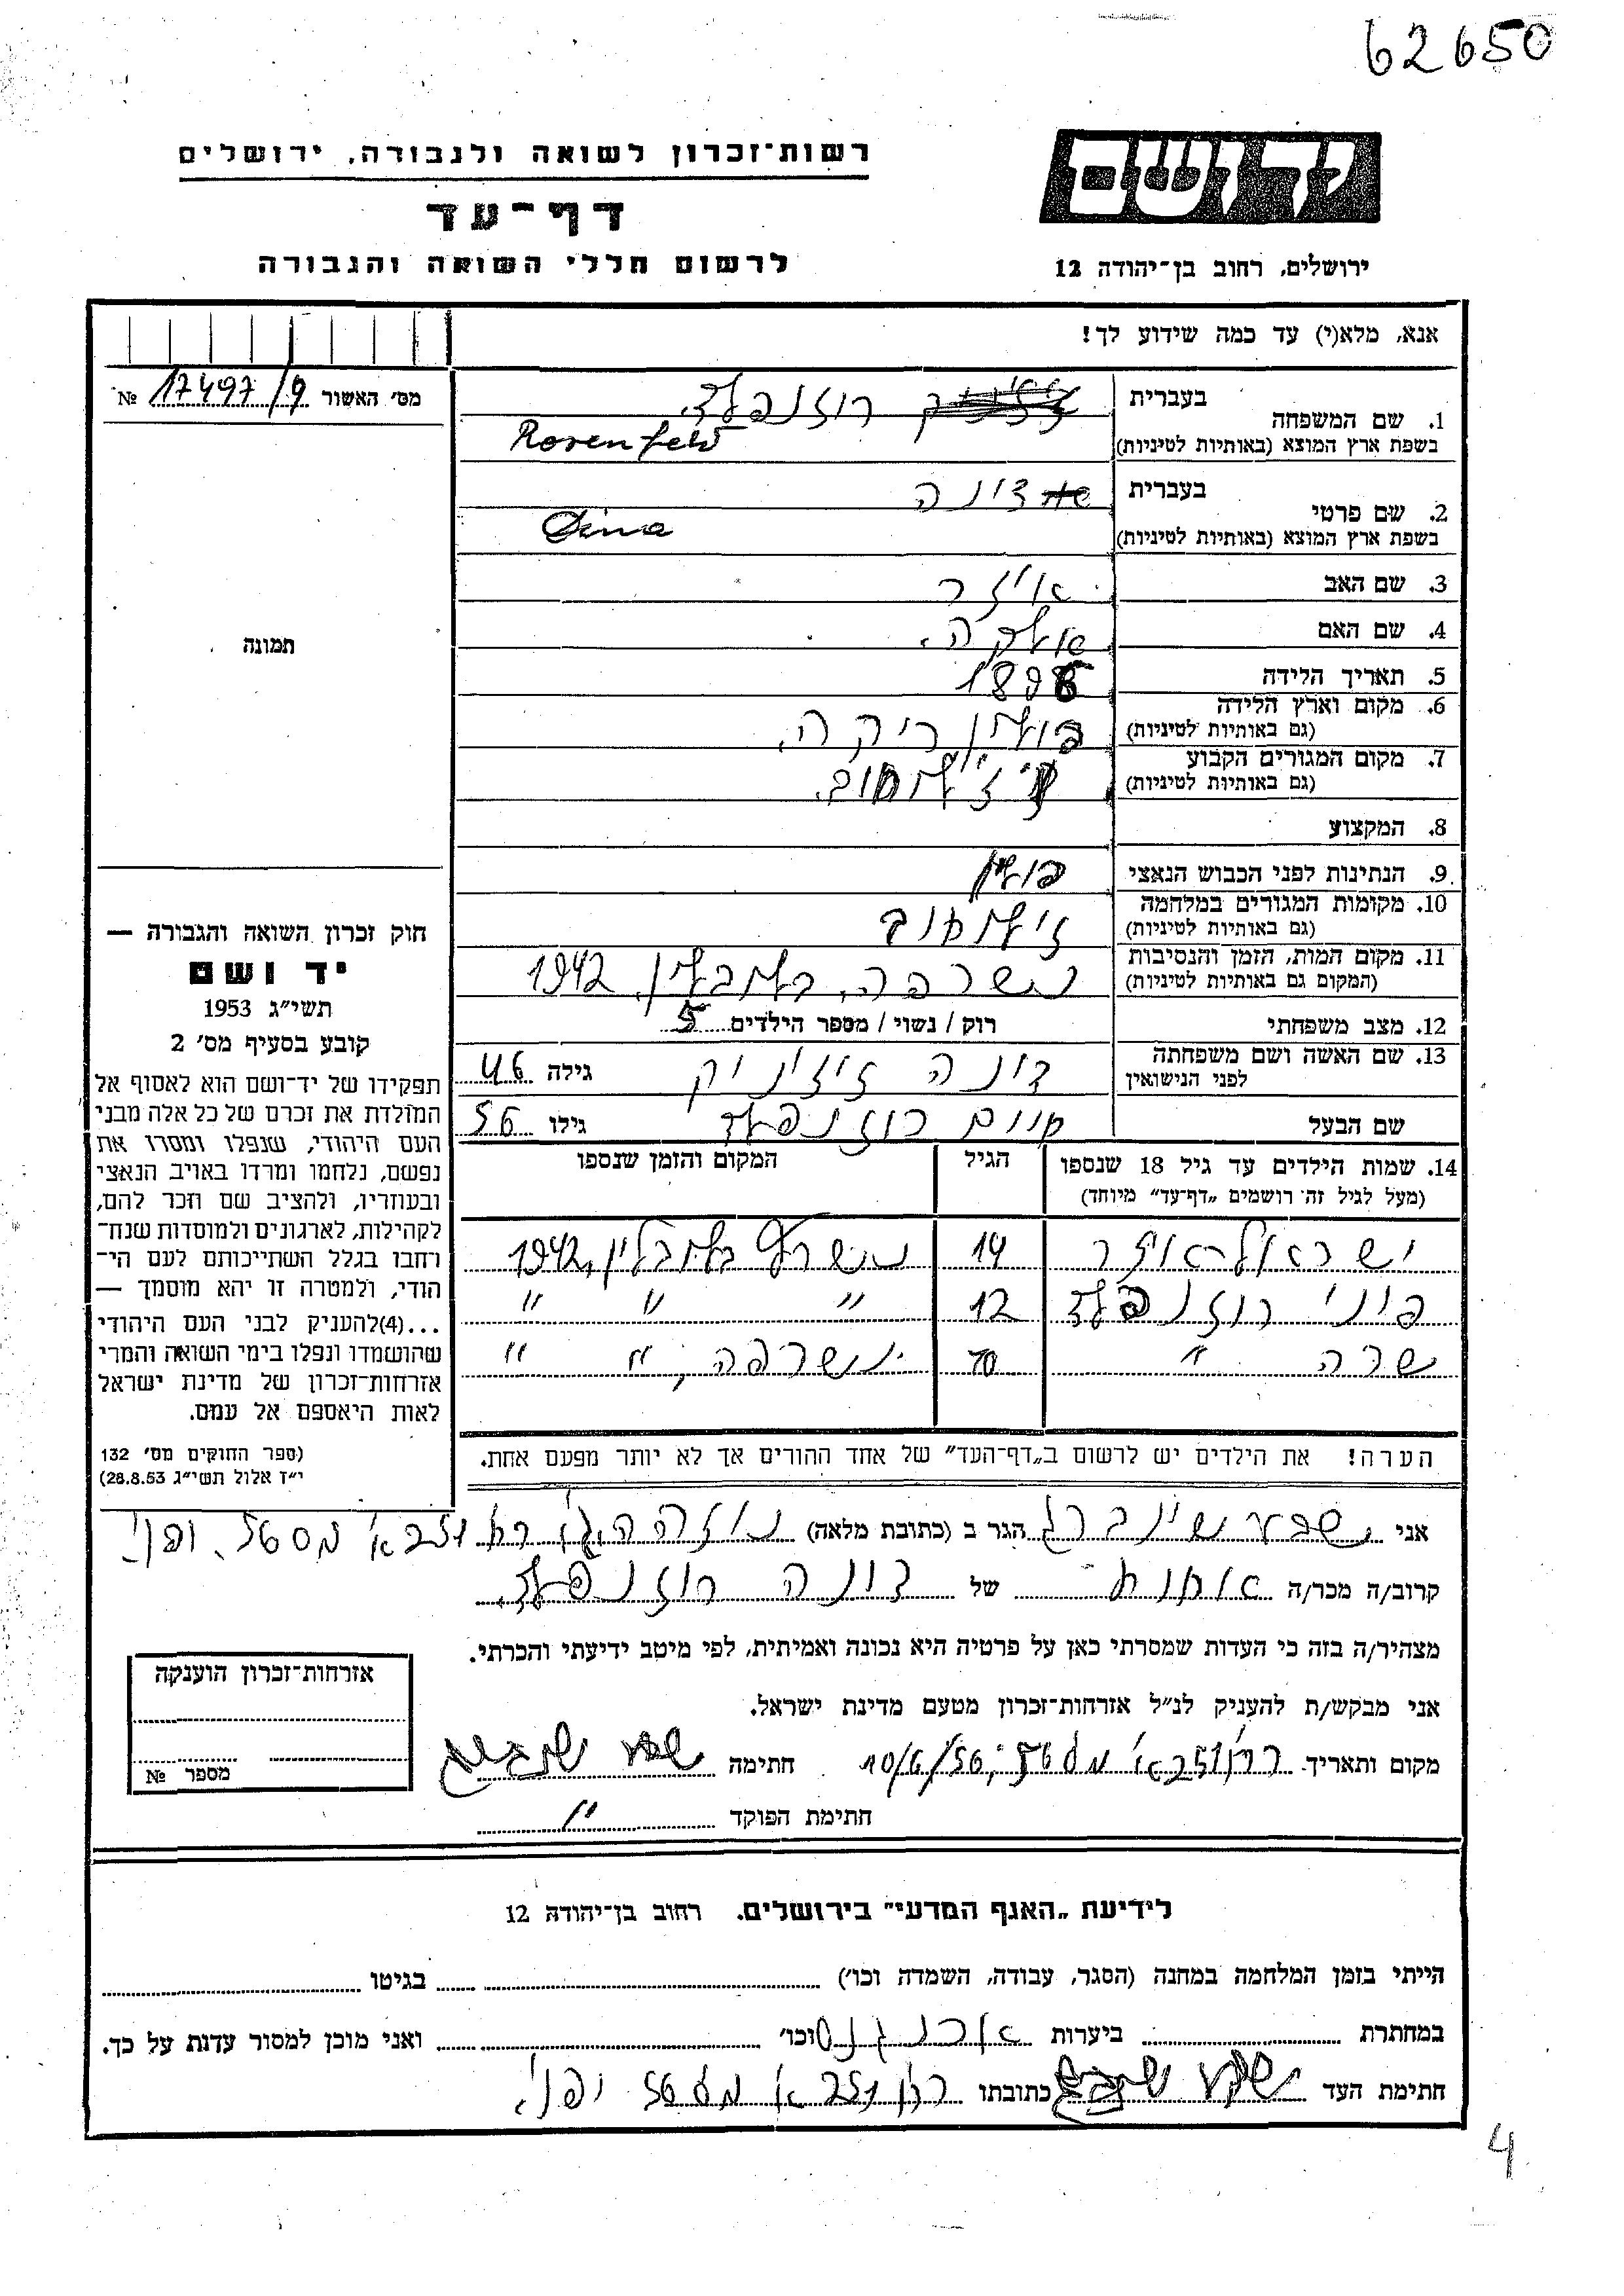 62650
ידושם
רשות־זכרון לשואה ולגבורה, ירושלים
דף־עד
לרשום חללי השואה והגבורה
ירושלים, רחוב בן־יהודה 12
אנא, מלא(י) עד כמה שידוע לך!
מס׳ האשור 17497/9 №
1. שם המשפחה בעברית רוזנפלד
בשפת ארץ המוצא (באותיות לטיניות) Rosenfeld
2. שם פרטי בעברית דינה
בשפת ארץ המוצא (באותיות לטיניות) Dina
3. שם האב
4. שם האם
5. תאריך הלידה
6. מקום וארץ הלידה
(גם באותיות לטיניות)
7. מקום המגורים הקבוע
(גם באותיות לטיניות)
8. המקצוע
9. הנתינות לפני הכבוש הנאצי פולין
10. מקומות המגורים במלחמה
(גם באותיות לטיניות)
11. מקום המות, הזמן והנסיבות נשרפה, בלובלין 1942
(המקום גם באותיות לטיניות)
12. מצב משפחתי רוק / נשוי / מספר הילדים 5
13. שם האשה ושם משפחתה לפני הנישואין דינה גילה 46
שם הבעל חיים רוזנפלד גילו 56
14. שמות הילדים עד גיל 18 שנספו הגיל המקום והזמן שנספו
(מעל לגיל זה רושמים „דף־עד” מיוחד)
ישראל 14 נשרף בלובלין, 1942
רוזנפלד 12 ״ ״ ״
שרה ״ 10 נשרפה, ״ ״
הערה! את הילדים יש לרשום ב„דף־העד” של אחד ההורים אך לא יותר מפעם אחת.
תמונה
חוק זכרון השואה והגבורה —
יד ושם
תשי״ג 1953
קובע בסעיף מס׳ 2
תפקידו של יד־ושם הוא לאסוף אל
המולדת את זכרם של כל אלה מבני
העם היהודי, שנפלו ומסרו את
נפשם, נלחמו ומרדו באויב הנאצי
ובעוזריו, ולהציב שם וזכר להם,
לקהילות, לארגונים ולמוסדות שנח־
רחבו בגלל השתייכותם לעם הי־
הודי, ולמטרה זו יהא מוסמך —
...(4)להעניק לבני העם היהודי
שהושמדו ונפלו בימי השואה והמרי
אזרחות־זכרון של מדינת ישראל
לאות היאספם אל עמם.
(ספר החוקים מס׳ 132
י״ז אלול תשי״ג 28.8.53)
אני הגר ב (כתובת מלאה)
קרוב/ה מכר/ה אחות של דינה רוזנפלד
מצהיר/ה בזה כי העדות שמסרתי כאן על פרטיה היא נכונה ואמיתית, לפי מיטב ידיעתי והכרתי.
אני מבקש/ת להעניק לנ״ל אזרחות־זכרון מטעם מדינת ישראל.
מקום ותאריך 10/6/56 חתימה
חתימת הפוקד
אזרחות־זכרון הוענקה
מספר №
לידיעת „האגף המדעי” בירושלים. רחוב בן־יהודה 12
הייתי בזמן המלחמה במחנה (הסגר, עבודה, השמדה וכו׳) בגיטו
במחתרת ביערות וכו׳ ואני מוכן למסור עדות על כך.
חתימת העד כתובתו
4